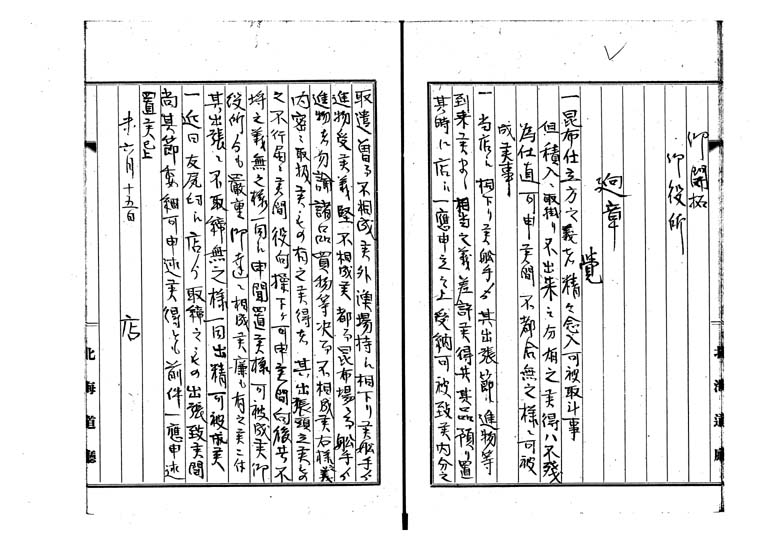 御開拓
御役所
廻章
覚
一昆布仕立方之義者精々念入可被取斗事
但積入、取掛り不出来之分有之候得ハ不残
為仕直可申候間不都合無之様、可被
成候事
一当店ニ相下り候船手ゟ其出張節ニ進物等
到来候ハヽ相当之義差許候得共其品預り置
其時ニ店ニ一應申立之上受納可被致候内分之
取遣曽而不相成候外漁場持ニ相下り候船手ゟ
進物受候義堅不相成候都而昆布場而船手ゟ
進物者勿論諸品買物等決而不相成候右様義
内密ニ取扱候もの有之候得者其出張頭立候もの
之不行届ニ候間役向操下ケ可申候間向後共不
埒之義無之様一同ニ申聞置候様可被成候御
役所ゟも厳重御達ニ相成候廉も有之候ニ付
其出張ニ不取締無之様一同出精可被成候
一近日友尻 店ゟ取締之もの出張致候間
尚其節委細可申述候得とも前件一應申述
置候已上
未六月十五日
店
北海道廳
北海道廳